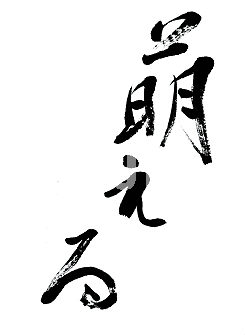 萌える